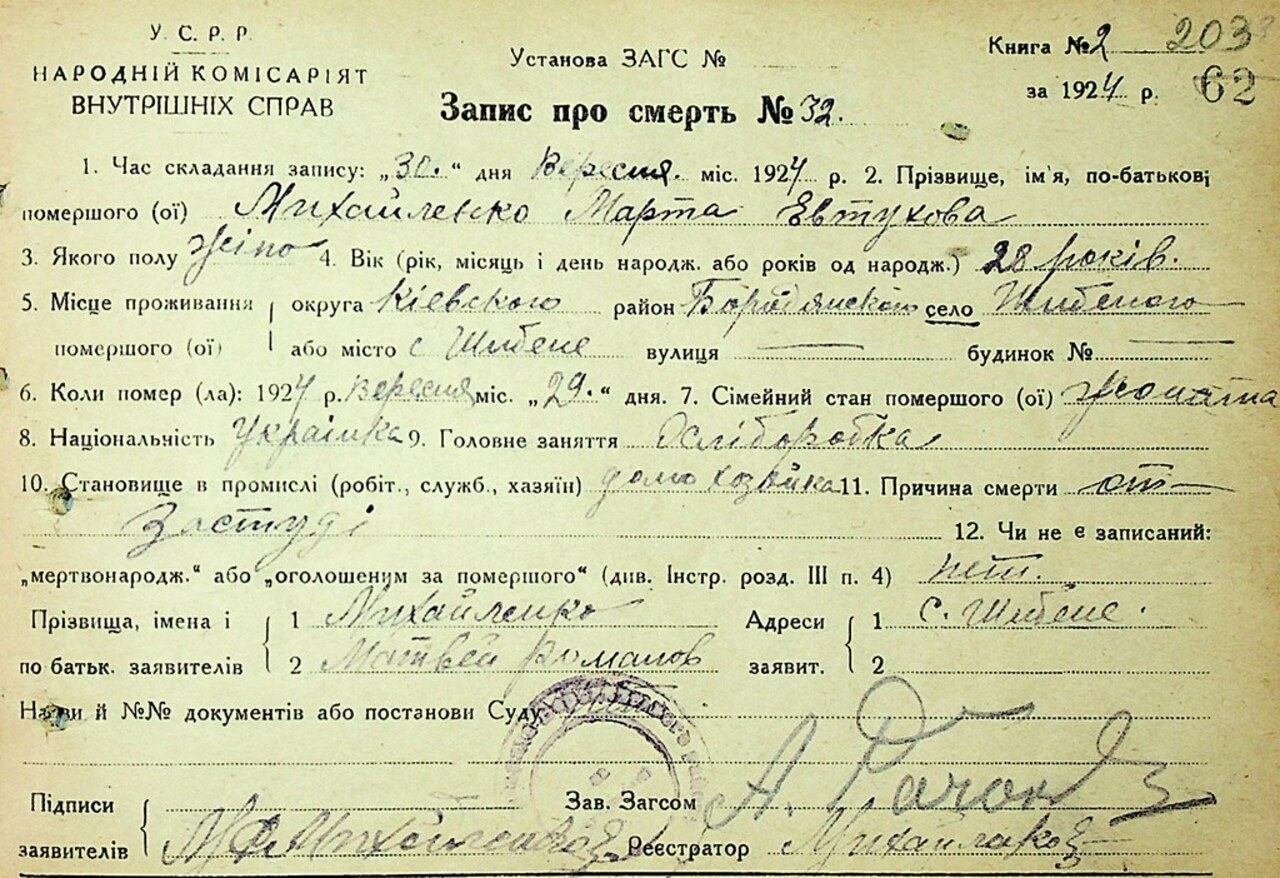 У. С. Р. Р.
НАРОДНІЙ КОМІСАРІЯТ
ВНУТРІШНІХ СПРАВ
Установа ЗАГС №
Книга № 2 203
за 1924 р. 62
Запис про смерть № 32.
1. Час складання запису: „30.“ дня Вересня. міс. 1924 р. 2. Прізвище, ім'я, по-батькові
помершого (ої) Михайленко Марта Евтухова
3. Якого полу жіно 4. Вік (рік, місяць і день народж. або років од народж.) 28 років.
5. Місце проживання округа Кіевского район Бородянском село Шибеного
помершого (ої) або місто с Шибене вулиця — будинок № —
6. Коли помер (ла): 1924 р. Вересня міс. „29.“ дня. 7. Сімейний стан помершого (ої) жоната
8. Національність Українка 9. Головне заняття Хліборобка
10. Становище в промислі (робіт., служб., хазяїн) домохозяйка 11. Причина смерти от
Застуді 12. Чи не є записаний:
„мертвонародж.“ або „оголошеним за помершого“ (див. Інстр. розд. III п. 4) нет.
Прізвища, імена і 1 Михайленко Адреси 1 с. Шибене.
по батьк. заявителів 2 Матвей Романов заявит. 2
Назви й №№ документів або постанови Суду
Підписи Зав. Загсом А.
заявителів Реєстратор